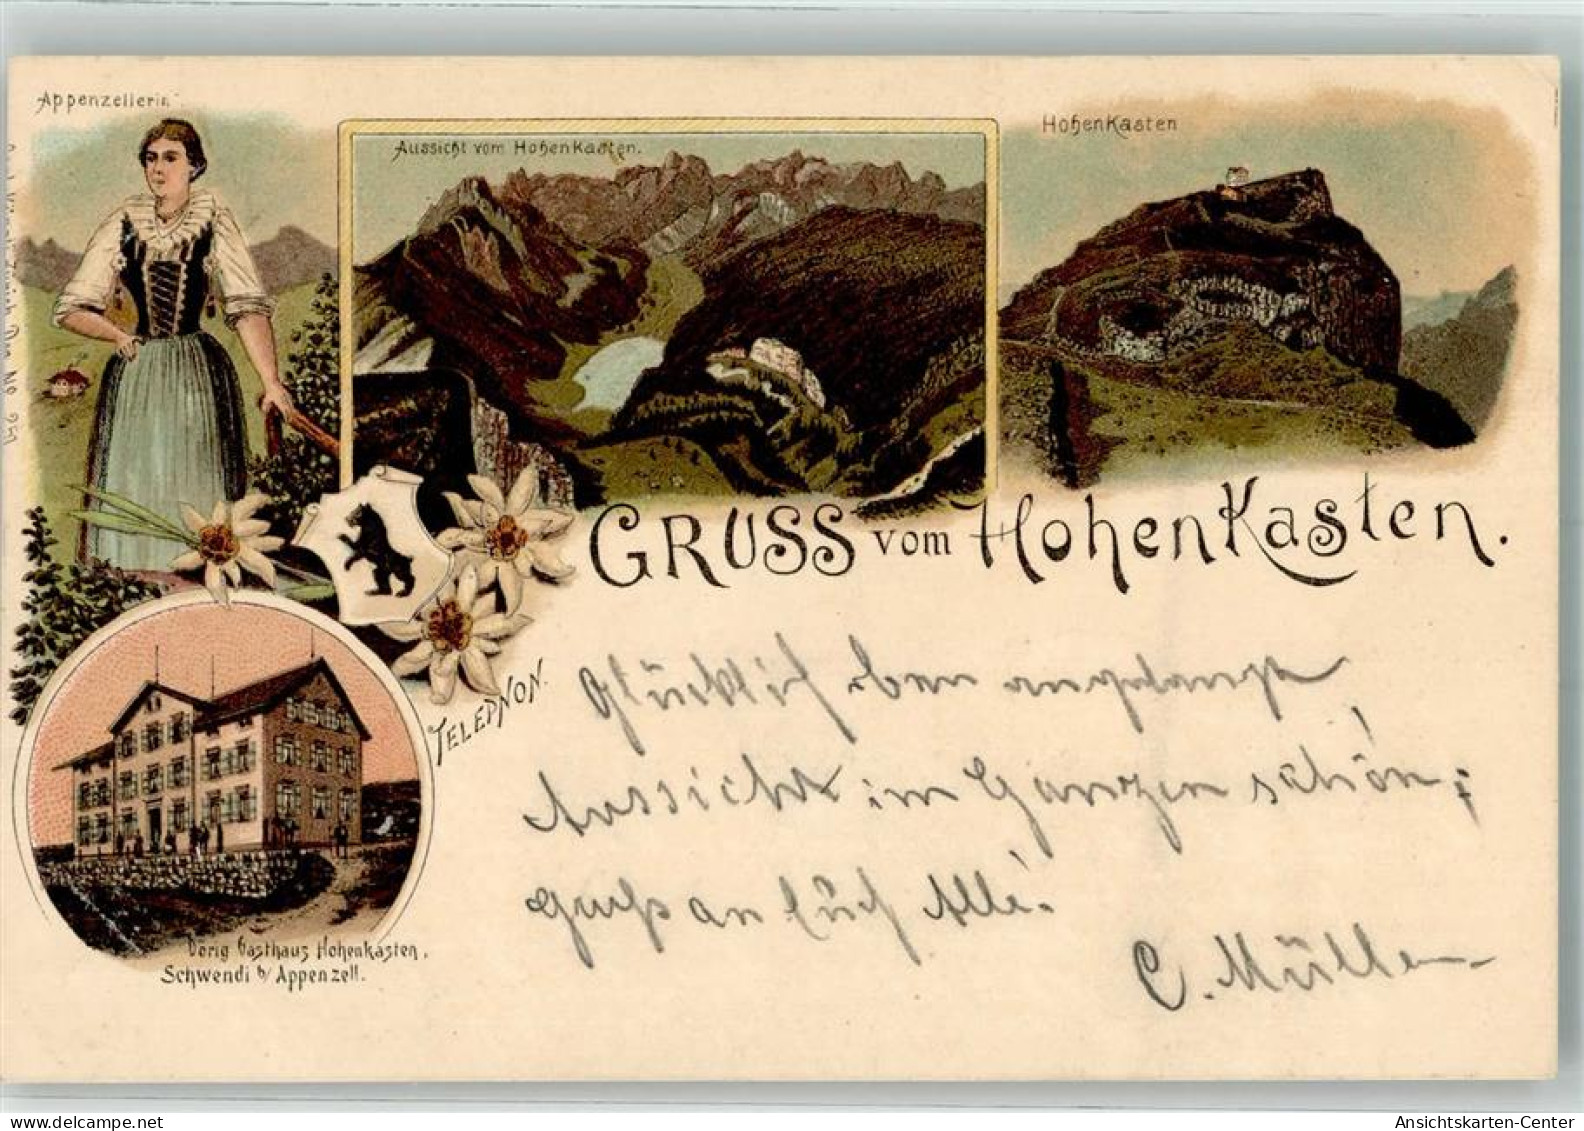 Appenzellerin
Aussicht vom HohenKasten.
HohenKasten
GRUSS vom HohenKasten.
TELEPHON.
Glücklich oben angelangt
Aussicht im Ganzen schön;
Gruß an Euch Alle.
C. Müller
Dörig Gasthaus Hohenkasten,
Schwendi b/ Appenzell.
oldthing.de
Ansichtskarten-Center